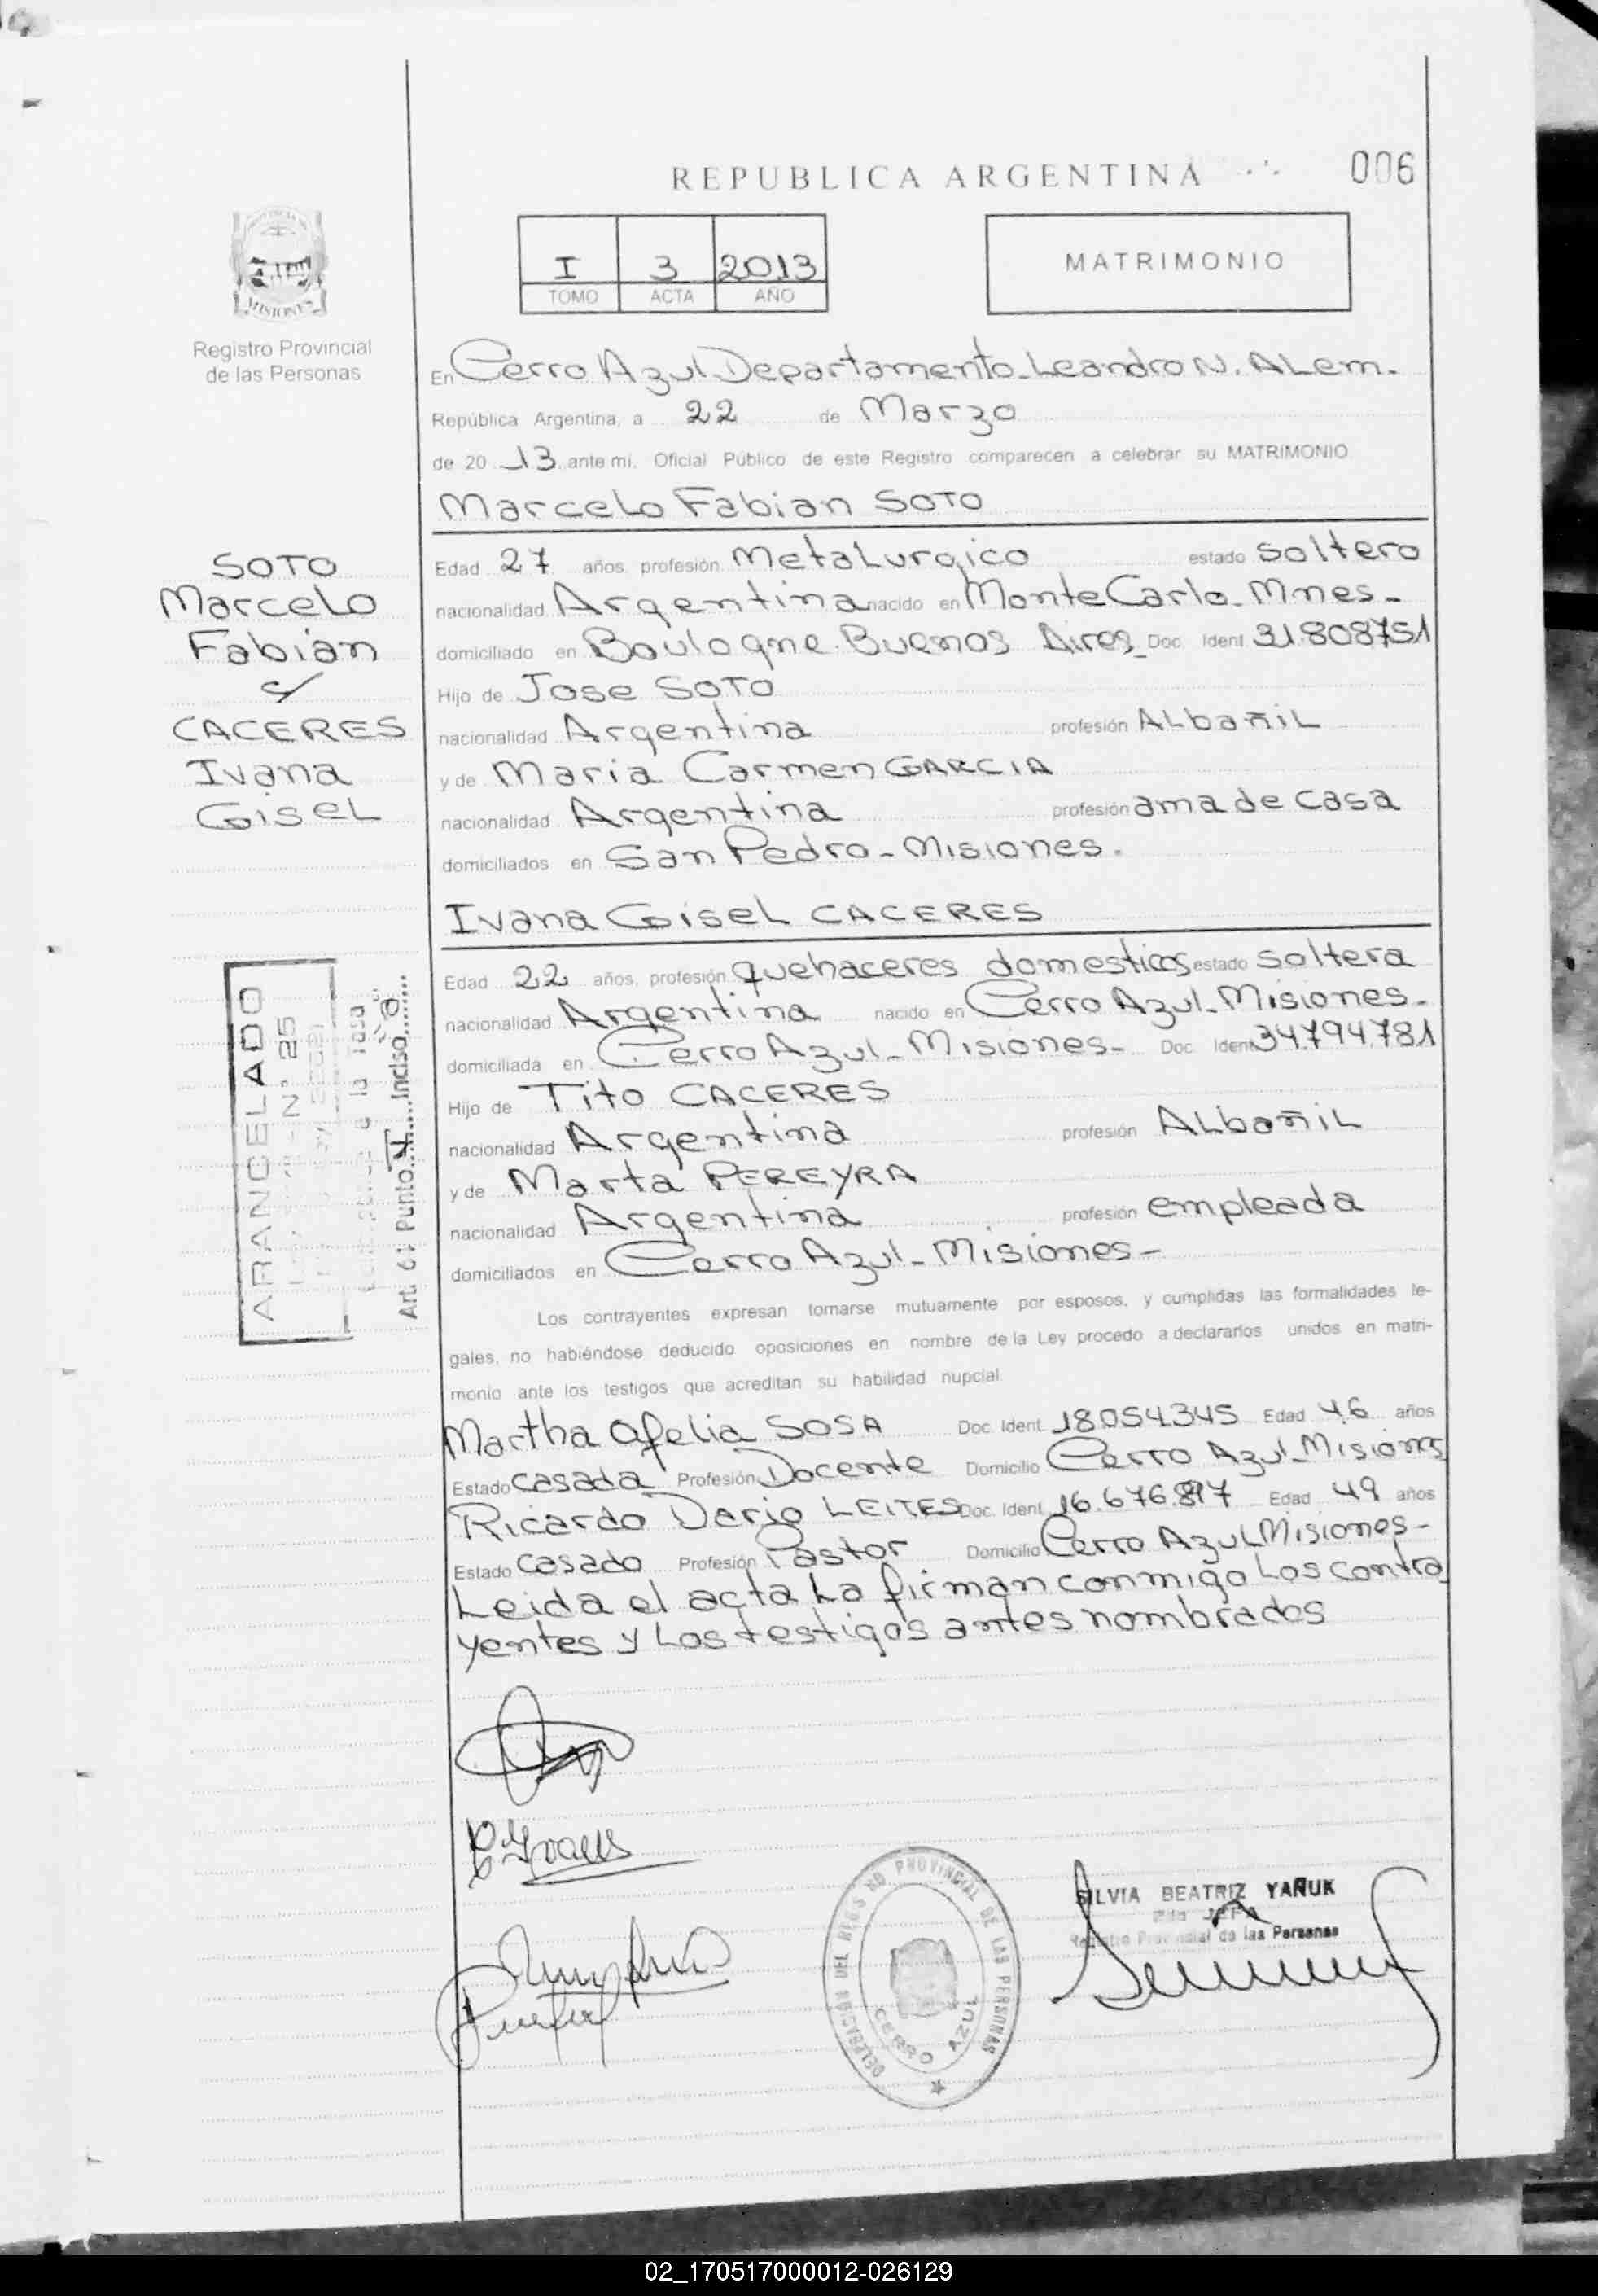 REPUBLICA ARGENTINA
006
MISIONES
Registro Provincial
de las Personas
I 3 2013
TOMO ACTA AÑO
MATRIMONIO
En Cerro Azul Departamento Leandro N. ALem.
República Argentina, a 22 de Marzo
de 20 13 ante mi, Oficial Público de este Registro comparecen a celebrar su MATRIMONIO
Marcelo Fabian SOTO
SOTO
Marcelo
Fabián
c/
CACERES
Ivana
Gisel
Edad 27 años, profesión Metalurgico estado soltero
nacionalidad Argentina nacido en Monte Carlo. Mnes-
domiciliado en Boulogne. Buenos Aires- Doc. Ident. 31.808751
Hijo de Jose SOTO
nacionalidad Argentina profesión ALbañiL
y de Maria Carmen GARCIA
nacionalidad Argentina profesión ama de casa
domiciliados en San Pedro - Misiones.
Ivana Gisel CACERES
Edad 22 años, profesión quehaceres domesticos estado soltera
nacionalidad Argentina nacido en Cerro Azul- Misiones-
domiciliada en Cerro Azul- Misiones- Doc. Ident 34.794.781
Hijo de Tito CACERES
nacionalidad Argentina profesión ALbañiL
y de Marta PEREYRA
nacionalidad Argentina profesión empleada
domiciliados en Cerro Azul- Misiones-
ARANCELADO
Nº 25
a la Tasa
Art. 6: Punto 4 Inciso a
Los contrayentes expresan tomarse mutuamente por esposos, y cumplidas las formalidades le-
gales, no habiéndose deducido oposiciones en nombre de la Ley procedo a declararlos unidos en matri-
monio ante los testigos que acreditan su habilidad nupcial.
Martha Ofelia SOSA Doc. Ident. 18.054.345 Edad 46 años
Estado casada Profesión Docente Domicilio Cerro Azul- Misiones
Ricardo Dario LEITES Doc. Ident. 16.676.897 Edad 49 años
Estado Casado Profesión Pastor Domicilio Cerro Azul Misiones-
Leida el acta La firman conmigo Los contra
yentes y Los testigos antes nombrados
DELEGACIÓN DEL REGISTRO PROVINCIAL DE LAS PERSONAS
CERRO AZUL
SILVIA BEATRIZ YAÑUK
JEFA
Registro Provincial de las Personas
02_170517000012-026129